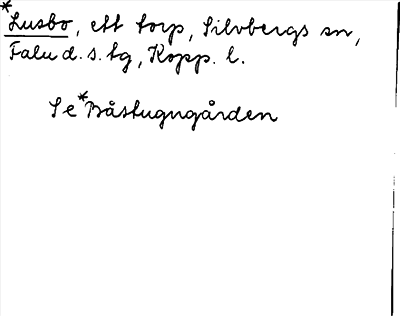 *Lusbo, ett torp, Silvbergs sn,
Falu d. s. tg, Kopp. l.
Se *Båstugngården